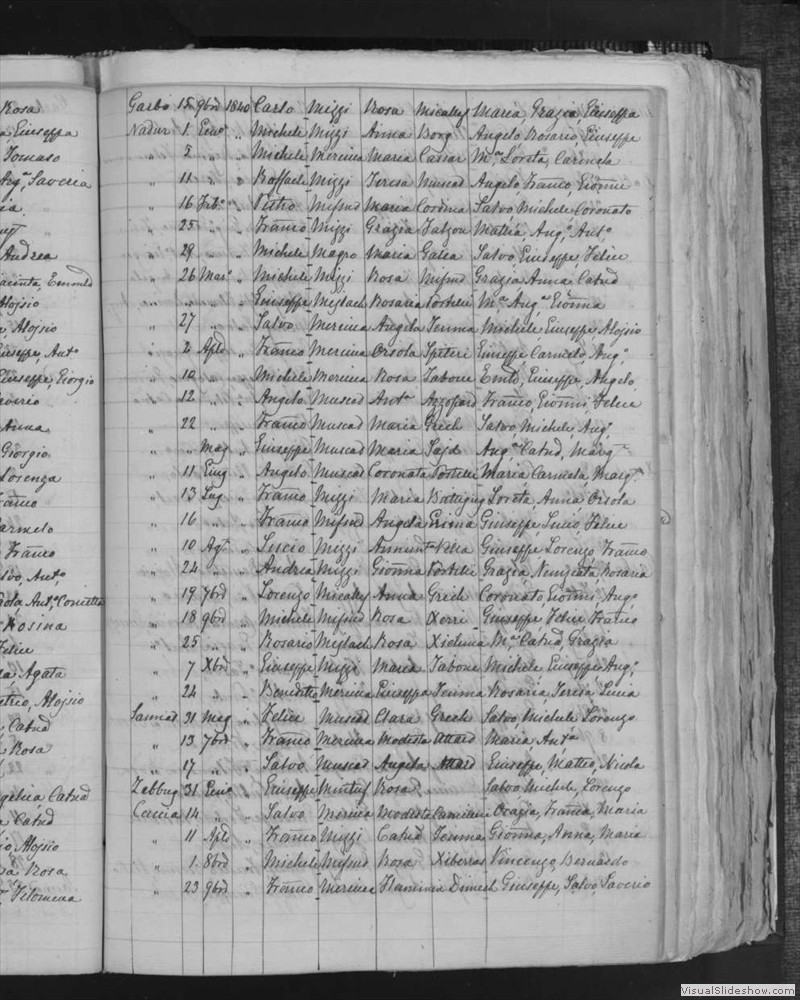 Rosa
Giuseppa
Tomaso
Saveria
Andrea
Aloisio
Aloisio
Giuseppe, Ant°
Giuseppe, Giorgio
Saverio
Anna
Giorgio
Lorenza
Franco
Carmelo
Franco
Salvo, Ant°
Rosina
Felice
Agata
Aloisio
Catnd
Rosa
Angelica Catnd
Catnd
Aloisio
Rosa
Filomena
Garbo 15 9brd 1840 Carlo Mizzi Rosa Micallef Maria, Grazia, Giuseppa
Nadur 1 Genº " Michele Mizzi Anna Borg Angelo Rosario, Giuseppe
" 2 " " Michele Mercieca Maria Cassar Mª Loreta, Carmela
" 11 " " Raffaele Mizzi Teresa Muscad Angelo, Franco, Gionni
" 16 Febº " Pietro Mifsud Maria Cordina Salvo Michele Coronato
" 25 " " Franco Mizzi Grazia Falzon Mattia Angº Antº
" 29 " " Michele Magro Maria Galea Salvo Giuseppe Felice
" 26 Marº " Michele Mizzi Rosa Mifsud Grazia Anna Catnd
" " " " Giuseppe Mejlach Rosaria Portelli Mª Angª Gionna
" 27 " " Salvo Mercieca Angela Tenma Michele Giuseppe, Aloisio
" 2 Aple " Franco Mercieca Orsola Spiteri Giuseppe Carmelo, Angº
" 10 " " Michele Mercieca Rosa Tabone Emlo, Giuseppe, Angelo
" 12 " " Angelo Muscad Antª Azzopard Franco, Gionni, Felice
" 22 " " Franco Muscad Maria Grech Salvo Michele, Angº
" " Mag " Giuseppe Muscad Maria Said Angª Catnd, Margª
" 11 Giug " Angelo Muscad Coronata Portelli Maria Carmela Margª
" 13 Lug " Franco Mizzi Maria Buttigieg Loreta, Anna Orsola
" 16 " " Franco Mifsud Angela Grima Giuseppe, Lucio, Felice
" 10 Agº " Liscio Mizzi Annunt Vella Giuseppe Lorenzo Franco
" 24 " " Andrea Mizzi Gionna Portelli Grazia, Nunziata, Rosaria
" 19 7brd " Lorenzo Micallef Anna Grech Coronato, Gionni, Angº
" 18 9brd " Michele Mifsud Rosa Xerri Giuseppe Felice Franco
" 25 " " Rosario Mejlach Rosa Xicluna Mª Catnd, Grazia
" 7 Xbrd " Giuseppe Mizzi Maria Tabone Michele Giuseppe Angº
" 24 " " Benedetto Mercieca Giuseppa Tenma Rosaria, Teresa Lucia
Sannat 31 Mag " Felice Muscad Clara Grech Salvo Michele Lorenzo
" 13 7brd " Franco Mercieca Modesta Attard Maria Antª
" 17 " " Salvo Muscad Angela Attard Giuseppe, Matteo, Nicola
Zebbug 31 Genº " Giuseppe Mintuf Rosa Salvo Michele, Lorenzo
Caccia 14 " " Salvo Mercieca Modesta Camilleri Orazia, Franca, Maria
" 11 Aple " Franco Mizzi Catnd Tenma Gionna, Anna, Maria
" 1 8brd " Michele Mifsud Rosa Xiberras Vincenzo, Bernardo
" 23 9brd " Franco Mercieca Flaminia Dimech Giuseppe, Salvo, Saverio
VisualSlideshow.com